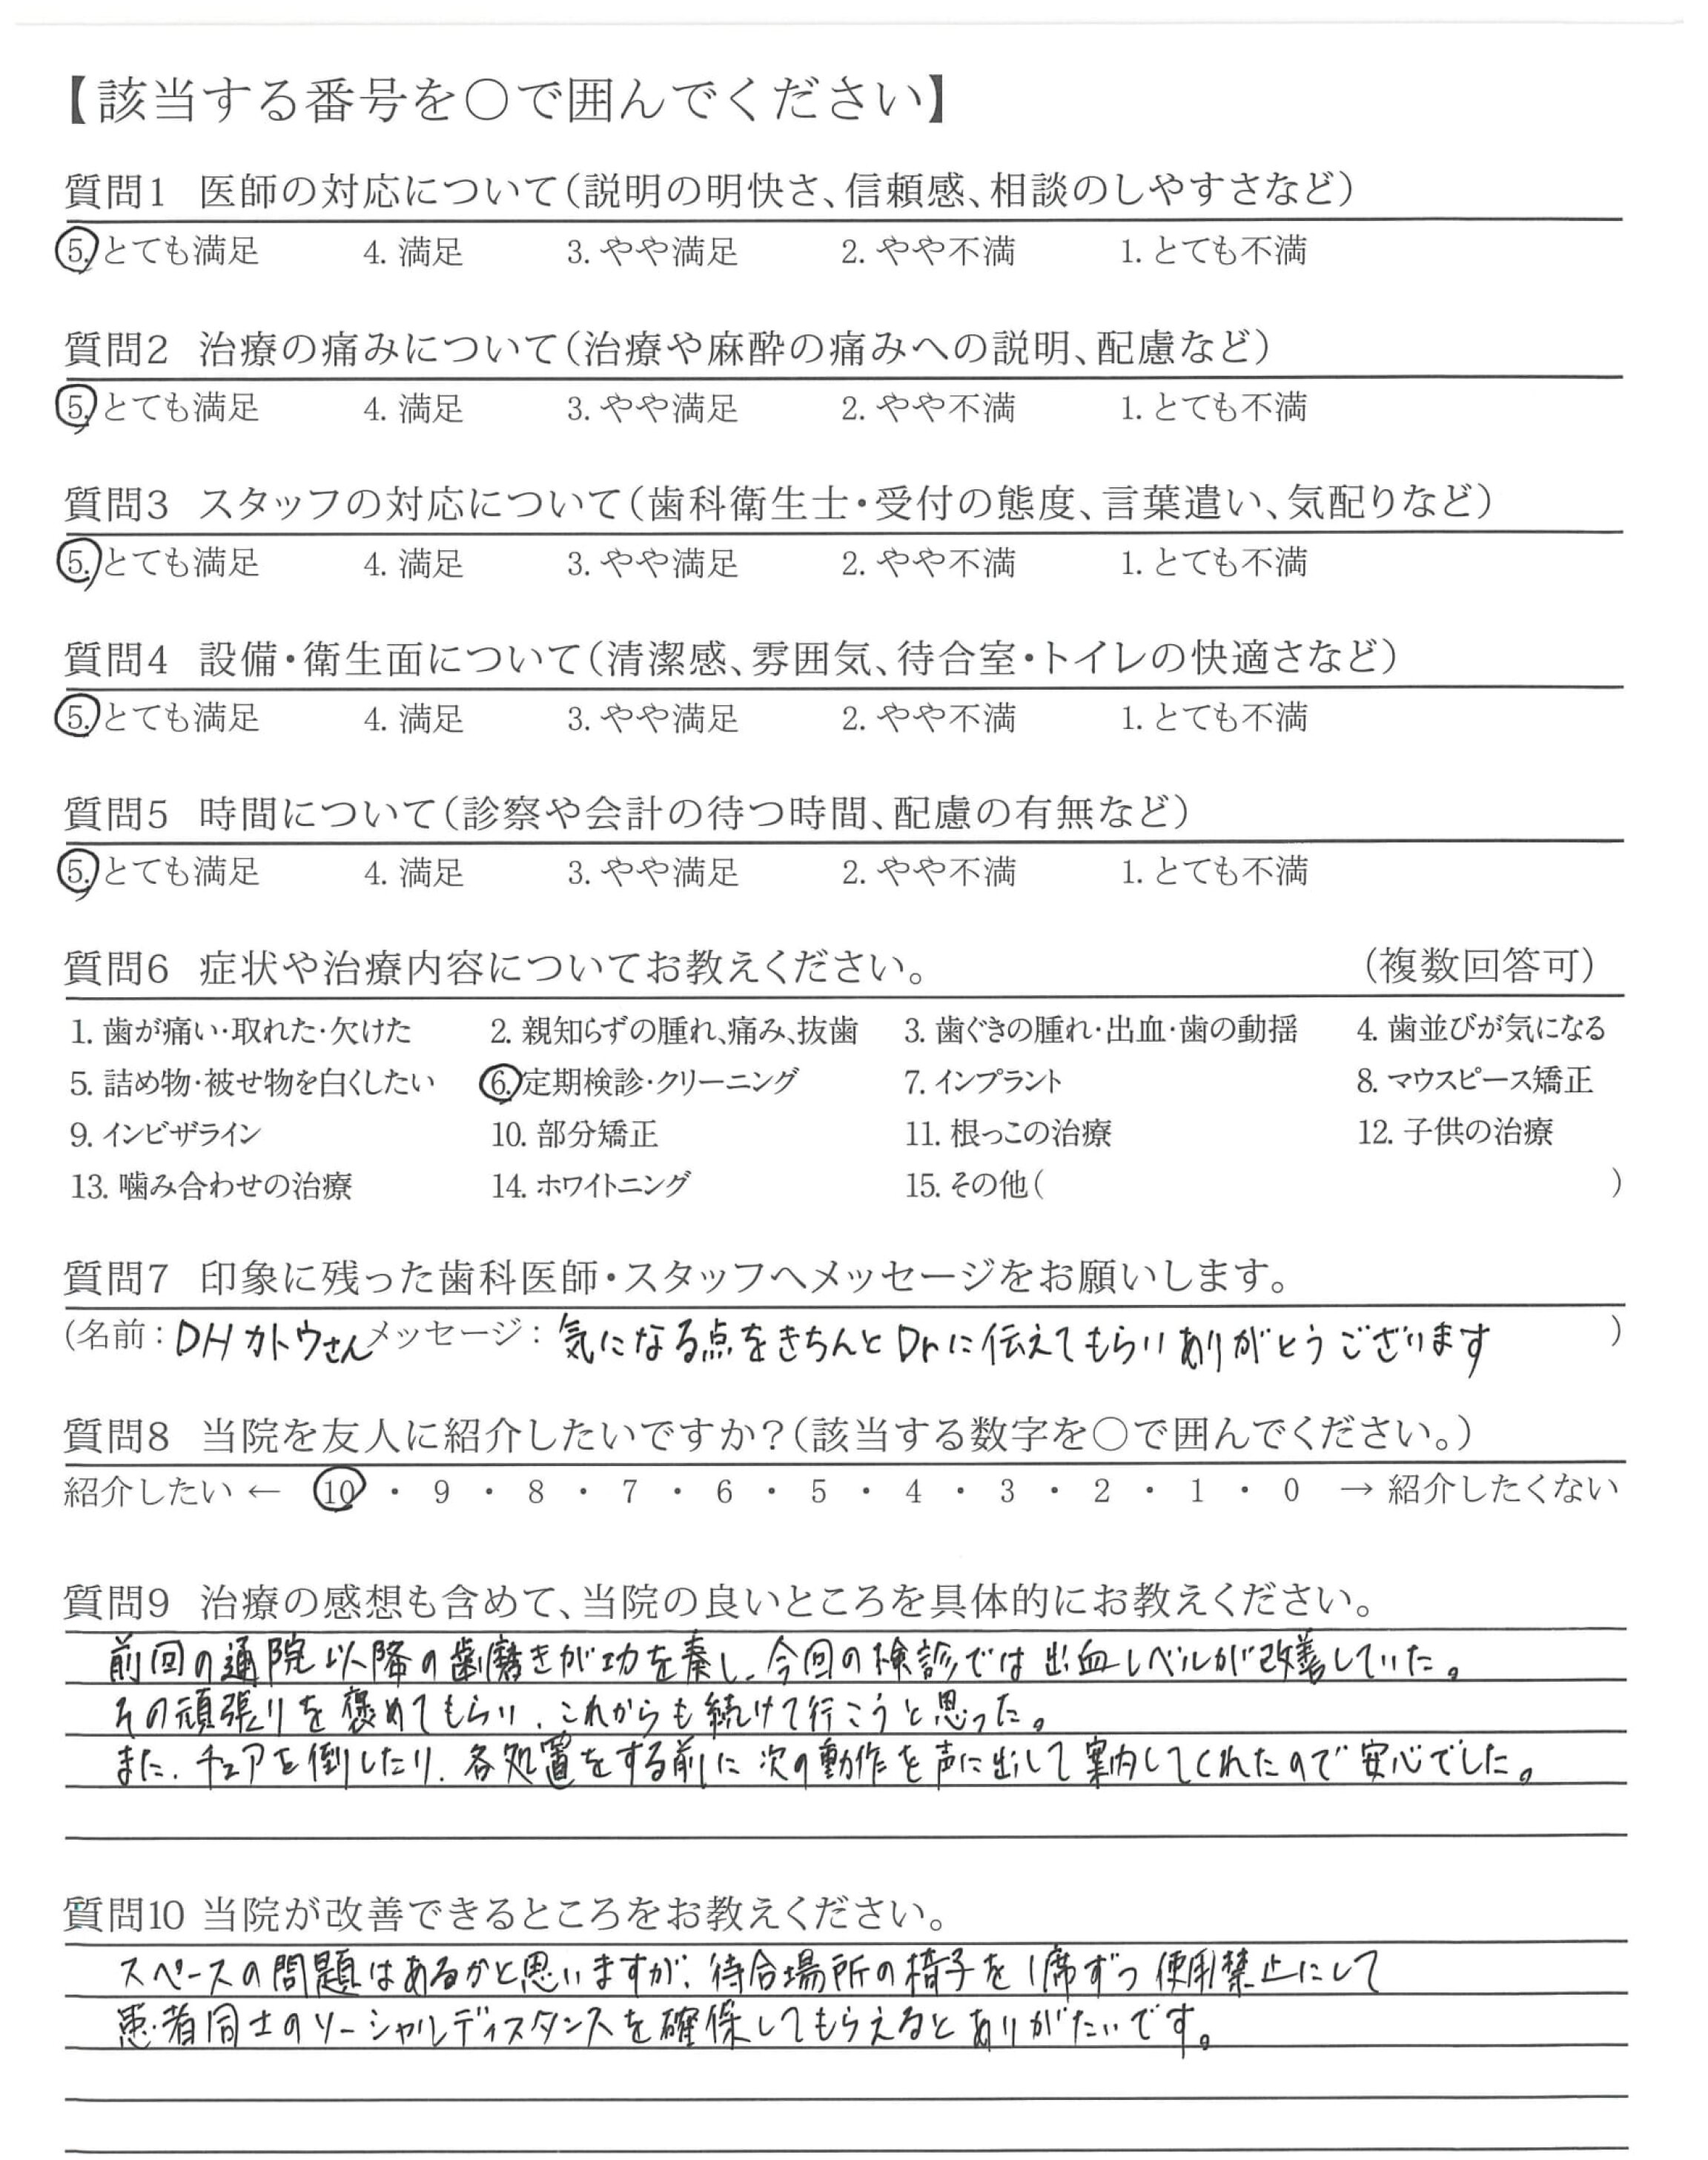 【該当する番号を○で囲んでください】
質問1 医師の対応について(説明の明快さ、信頼感、相談のしやすさなど)
5. とても満足 4. 満足 3. やや満足 2. やや不満 1. とても不満
質問2 治療の痛みについて(治療や麻酔の痛みへの説明、配慮など)
5. とても満足 4. 満足 3. やや満足 2. やや不満 1. とても不満
質問3 スタッフの対応について(歯科衛生士・受付の態度、言葉遣い、気配りなど)
5. とても満足 4. 満足 3. やや満足 2. やや不満 1. とても不満
質問4 設備・衛生面について(清潔感、雰囲気、待合室・トイレの快適さなど)
5. とても満足 4. 満足 3. やや満足 2. やや不満 1. とても不満
質問5 時間について(診察や会計の待つ時間、配慮の有無など)
5. とても満足 4. 満足 3. やや満足 2. やや不満 1. とても不満
質問6 症状や治療内容についてお教えください。 (複数回答可)
1. 歯が痛い・取れた・欠けた 2. 親知らずの腫れ、痛み、抜歯 3. 歯ぐきの腫れ・出血・歯の動揺 4. 歯並びが気になる
5. 詰め物・被せ物を白くしたい 6. 定期検診・クリーニング 7. インプラント 8. マウスピース矯正
9. インビザライン 10. 部分矯正 11. 根っこの治療 12. 子供の治療
13. 噛み合わせの治療 14. ホワイトニング 15. その他( )
質問7 印象に残った歯科医師・スタッフへメッセージをお願いします。
(名前：DHカトウさん メッセージ：気になる点をきちんとDrに伝えてもらいありがとうございます )
質問8 当院を友人に紹介したいですか？(該当する数字を○で囲んでください。)
紹介したい ← 10 ・ 9 ・ 8 ・ 7 ・ 6 ・ 5 ・ 4 ・ 3 ・ 2 ・ 1 ・ 0 → 紹介したくない
質問9 治療の感想も含めて、当院の良いところを具体的にお教えください。
前回の通院以降の歯磨きが功を奏し、今回の検診では出血レベルが改善していた。
その頑張りを褒めてもらい、これからも続けて行こうと思った。
また、チェアを倒したり、各処置をする前に次の動作を声に出して案内してくれたので安心でした。
質問10 当院が改善できるところをお教えください。
スペースの問題はあるかと思いますが、待合場所の椅子を1席ずつ使用禁止にして
患者同士のソーシャルディスタンスを確保してもらえるとありがたいです。